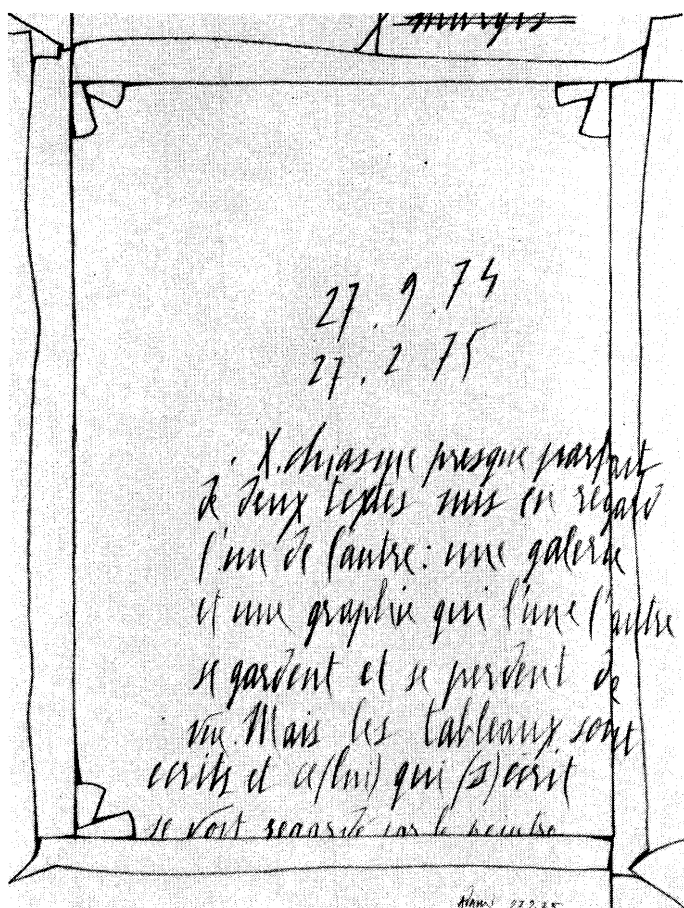 marges
27.9.74
27.2.75
X. chiasme presque parfait
de deux textes mis en regard
l'un de l'autre : une galerie
et une graphie qui l'une l'autre
se gardent et se perdent de
vue. Mais les tableaux sont
écrits et ce(lui) qui (s)écrit
se voit regardé par le peintre
Adami 27.2.75